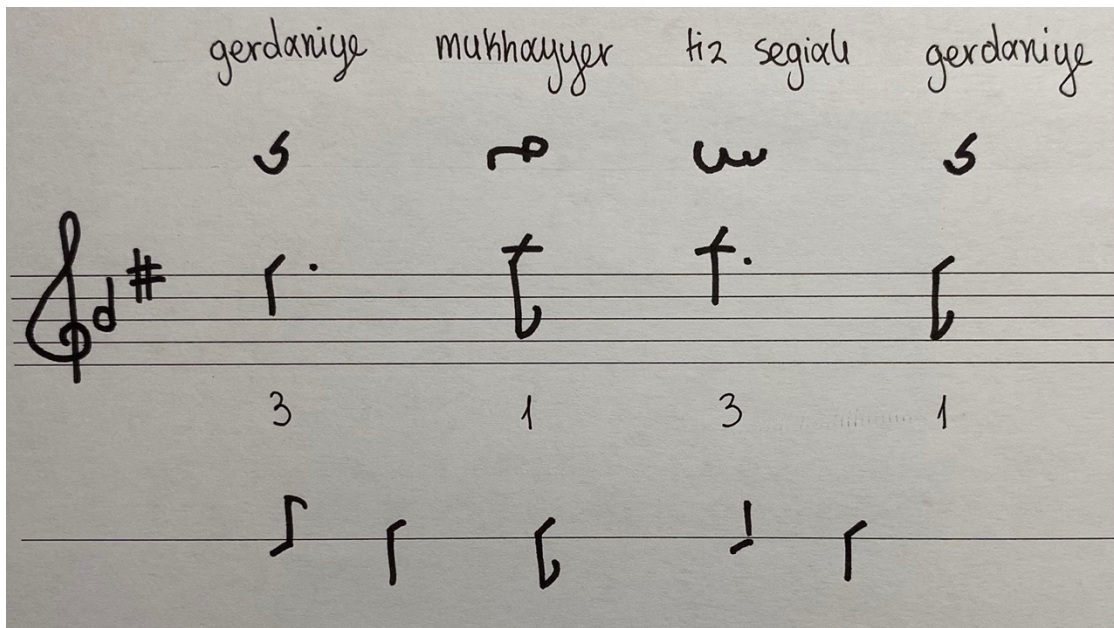 gerdaniye mukhayyer tiz segiah gerdaniye
3 1 3 1